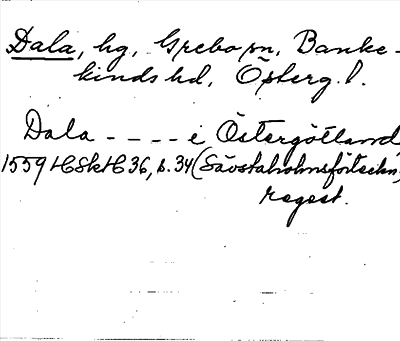 Dala, hg, Grebo sn, Banke-
kinds hd, Österg. l.
Dala - - - - i Östergötland
1559 HSkH 36, s. 34 (Sävstaholmsförteckn,
regest.